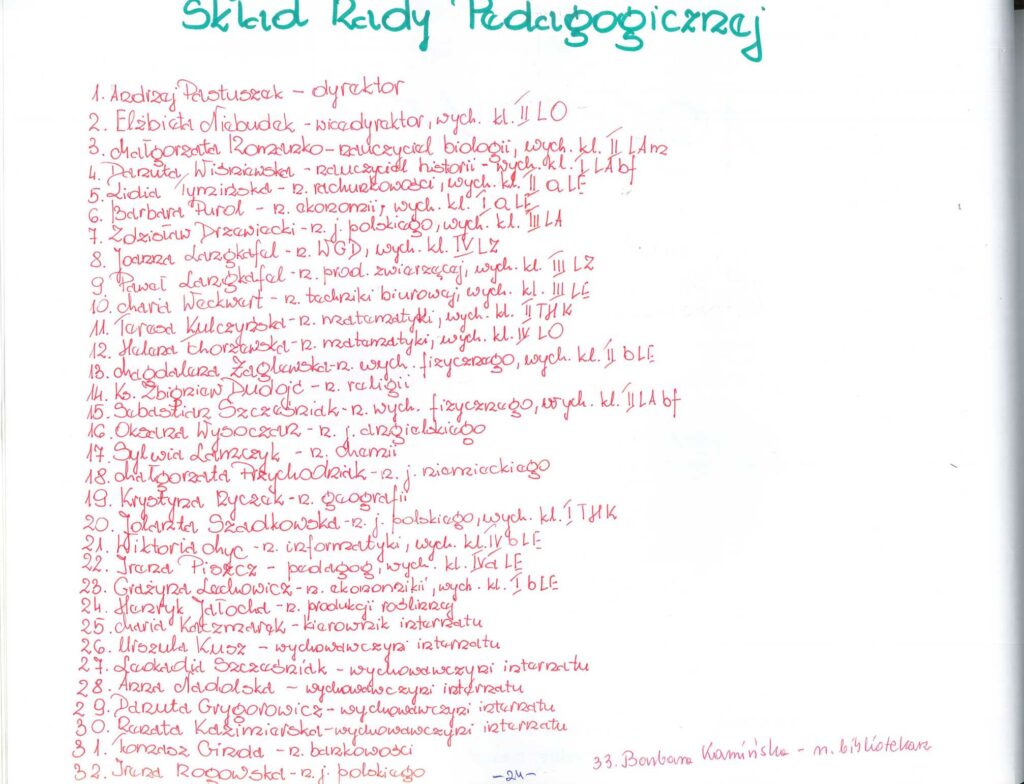 Skład Rady Pedagogicznej
1. Andrzej Pastuszak - dyrektor
2. Elżbieta Niebudek - wicedyrektor, wych. kl. II LO
3. Małgorzata Romanko - nauczyciel biologii, wych. kl. II LAm
4. Danuta Wiśniewska - nauczyciel historii - wych. kl. I LAbf
5. Lidia Tymińska - n. rachunkowości, wych. kl. II a LE
6. Barbara Purol - n. ekonomii, wych. kl. I a LE
7. Zdzisław Drzewiecki - n. j. polskiego, wych. kl. III LA
8. Joanna Langkafel - n. WGD, wych. kl. IV LZ
9. Paweł Langkafel - n. prod. zwierzęcej, wych. kl. III LZ
10. Maria Weckwert - n. techniki biurowej, wych. kl. III LE
11. Teresa Kulczyńska - n. matematyki, wych. kl. II THK
12. Helena Chorzewska - n. matematyki, wych. kl. IV LO
13. Magdalena Żaglewska - n. wych. fizycznego, wych. kl. II b LE
14. Ks. Zbigniew Dudojć - n. religii
15. Sebastian Szcześniak - n. wych. fizycznego, wych. kl. II LAbf
16. Oksana Wysoczan - n. j. angielskiego
17. Sylwia Lanczyk - n. chemii
18. Małgorzata Przychodniak - n. j. niemieckiego
19. Krystyna Ryczek - n. geografii
20. Jolanta Szadkowska - n. j. polskiego, wych. kl. I THK
21. Wiktoria Myc - n. informatyki, wych. kl. IV b LE
22. Irena Piszcz - pedagog, wych. kl. IV a LE
23. Grażyna Lechowicz - n. ekonomikii, wych. kl. I b LE
24. Henryk Jałocha - n. produkcji roślinnej
25. Maria Kaczmarek - kierownik internatu
26. Urszula Kusz - wychowawczyni internatu
27. Leokadia Szcześniak - wychowawczyni internatu
28. Anna Nadolska - wychowawczyni internatu
29. Danuta Grygorowicz - wychowawczyni internatu
30. Renata Kazimierska - wychowawczyni internatu
31. Tomasz Girda - n. bankowości
32. Irena Rogowska - n. j. polskiego
33. Barbara Kamińska - n. bibliotekarz
- 24 -